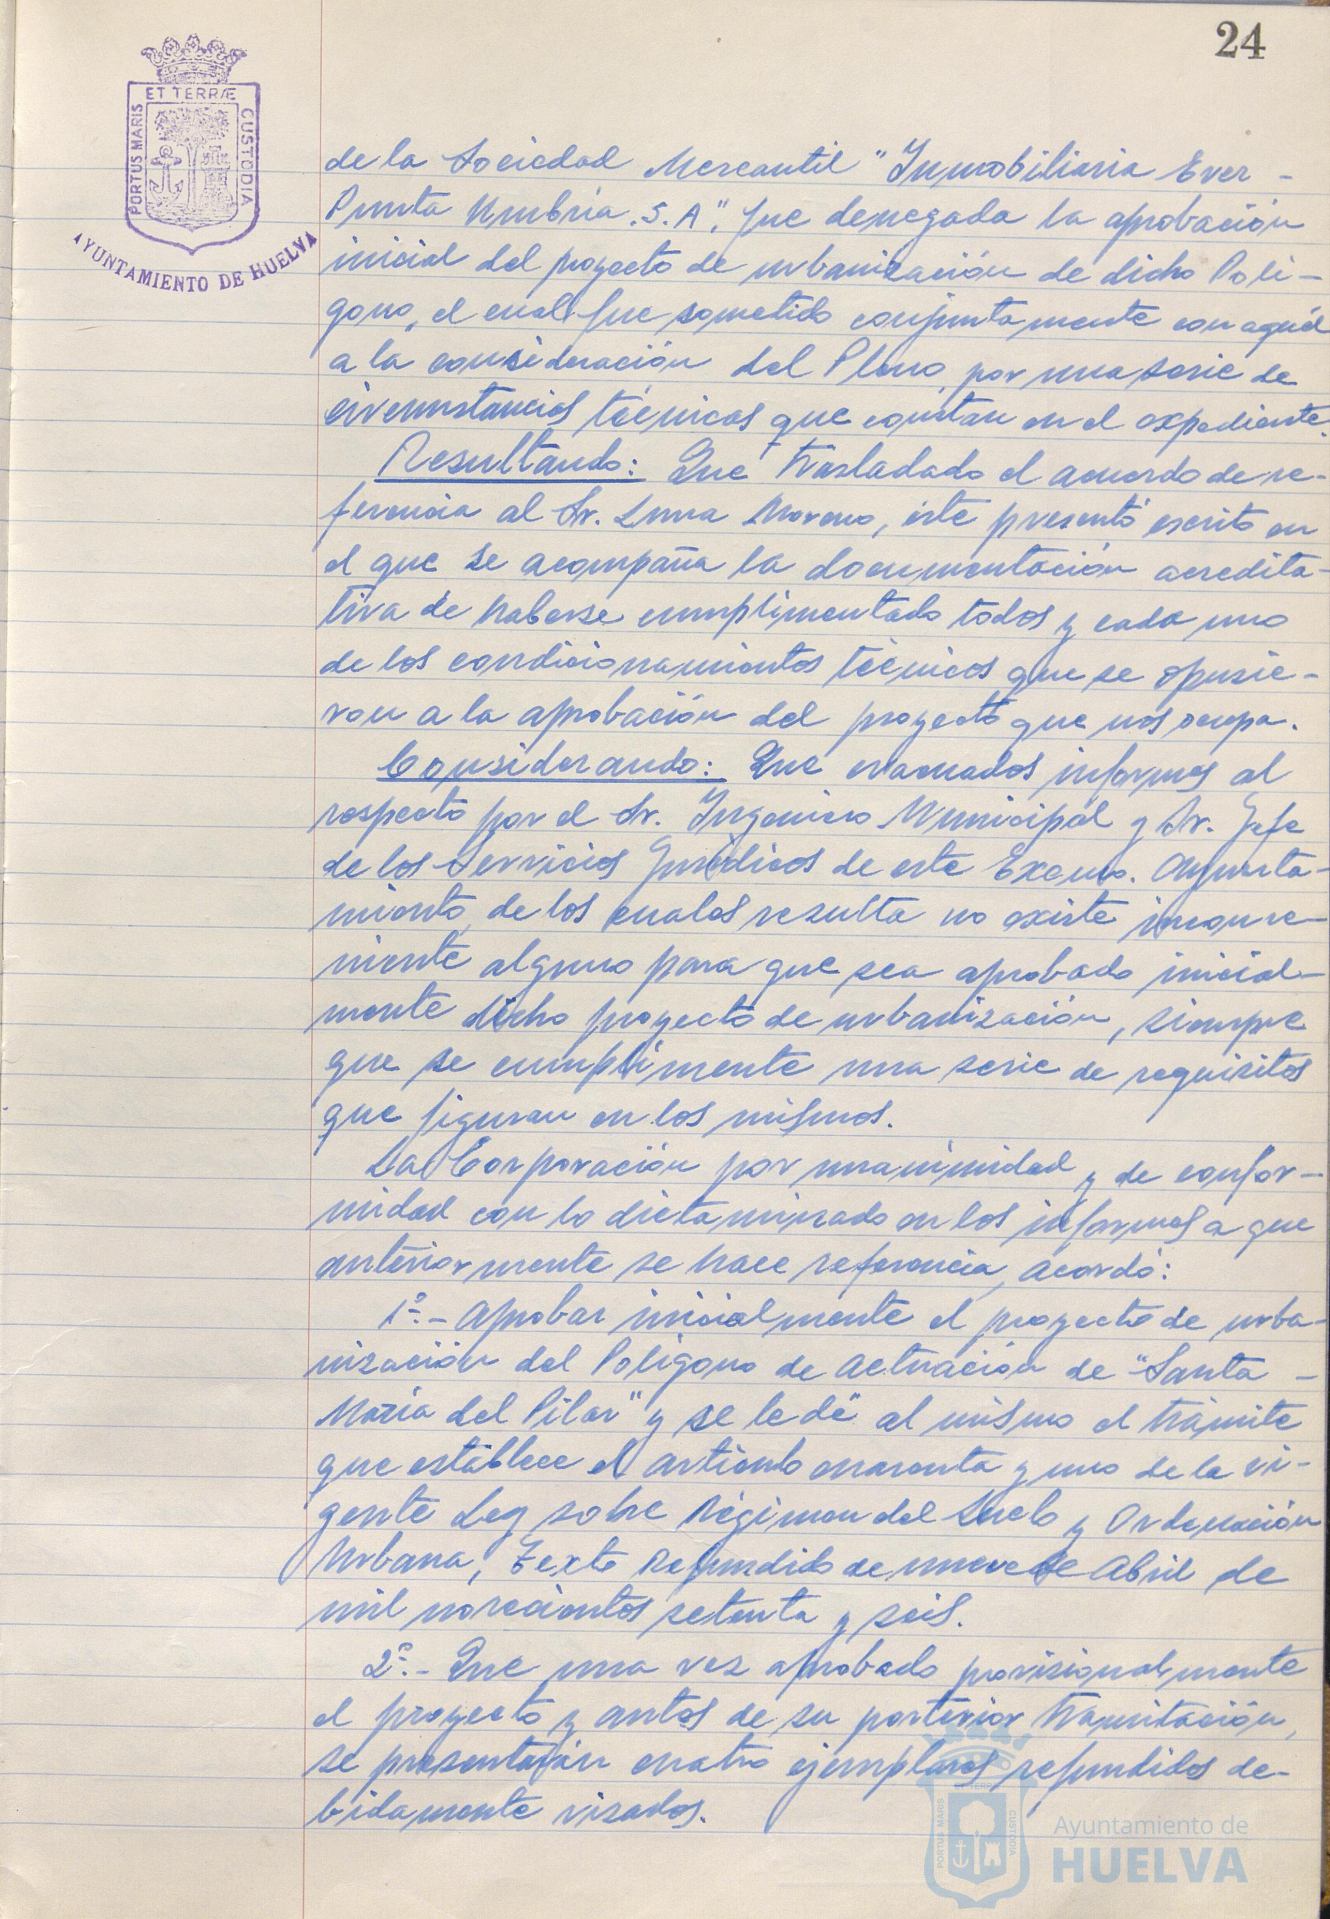 24
ET TERRÆ
PORTUS MARIS
CUSTODIA
AYUNTAMIENTO DE HUELVA
de la Sociedad Mercantil "Inmobiliaria Ever -
Punta Umbría .S.A", fue denegada la aprobación
inicial del proyecto de urbanización de dicho Polí-
gono, el cual fue sometido conjuntamente con aquél
a la consideración del Pleno, por una serie de
circunstancias técnicas que constan en el expediente.
Resultando: Que trasladado el acuerdo de re-
ferencia al Sr. Luna Moreno, éste presentó escrito en
el que se acompaña la documentación acredita-
tiva de haberse cumplimentado todos y cada uno
de los condicionamientos técnicos que se opusie-
ron a la aprobación del proyecto que nos ocupa.
Considerando: Que evacuados informes al
respecto por el Sr. Ingeniero Municipal y Sr. Jefe
de los Servicios Jurídicos de este Excmo. Ayunta-
miento, de los cuales resulta no existe inconve-
niente alguno para que sea aprobado inicial-
mente dicho proyecto de urbanización, siempre
que se cumplimente una serie de requisitos
que figuran en los mismos.
La Corporación por unanimidad y de confor-
midad con lo dictaminado en los informes a que
anteriormente se hace referencia, acordó:
1º.- Aprobar inicialmente el proyecto de urba-
nización del Polígono de Actuación de "Santa -
María del Pilar" y se le dé al mismo el trámite
que establece el artículo cuarenta y uno de la vi-
gente Ley sobre Régimen del Suelo y Ordenación
Urbana, Texto Refundido de nueve de Abril de
mil novecientos setenta y seis.
2º.- Que una vez aprobado provisionalmente
el proyecto y antes de su posterior tramitación,
se presentarán cuatro ejemplares refundidos de-
bidamente visados.
ET TERRÆ
PORTUS MARIS
CUSTODIA
Ayuntamiento de
HUELVA